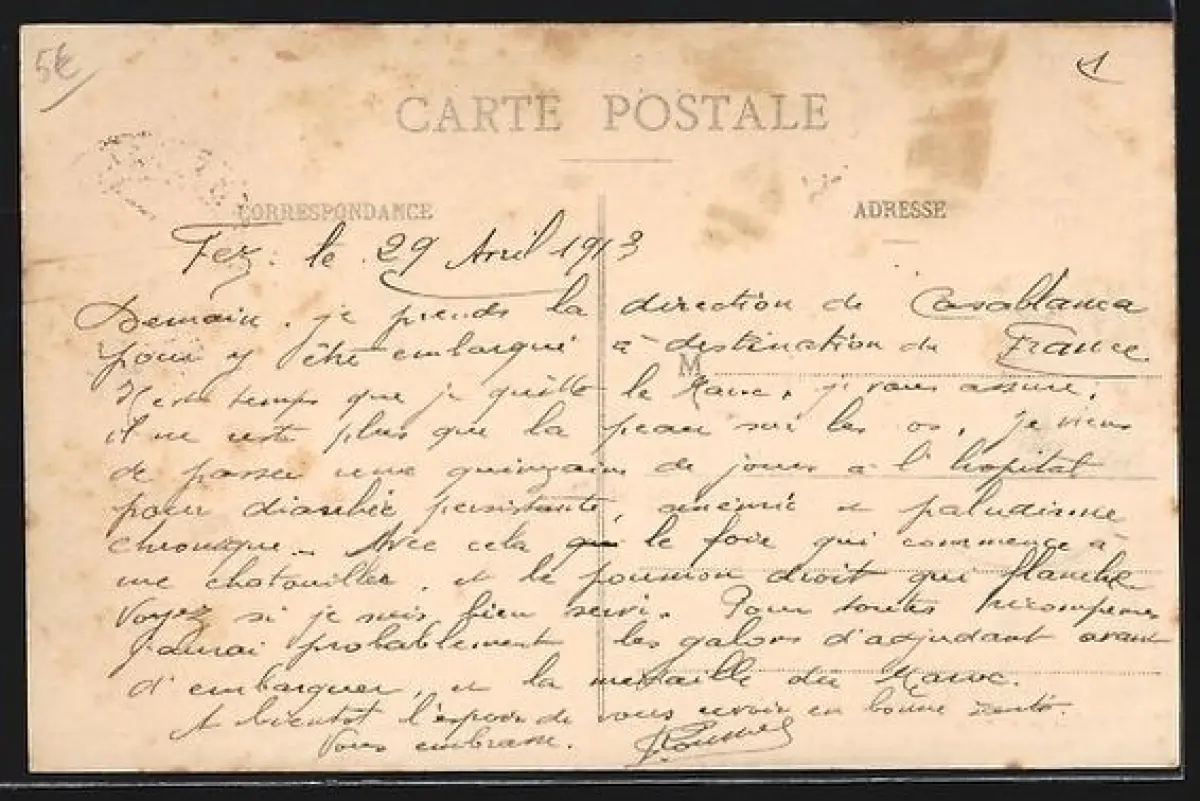 5€
1
CARTE POSTALE
CORRESPONDANCE
ADRESSE
Fez. le 29 Avril 1913
Demain, je prends la direction de Casablanca
pour y être embarqué à destination de France
M
Il est temps que je quitte le Maroc, je vous assure,
il ne reste plus que la peau sur les os, je viens
de passer une quinzaine de jours à l'hopital
pour diarrhée persistante, anémie et paludisme
chronique. Avec cela le foie qui commence à
me chatouiller, et le poumon droit qui flanche
Voyez si je suis bien servi. Pour toutes récompenses
j'aurai probablement les galons d'adjudant avant
d'embarquer, et la médaille du Maroc.
A bientot l'espoir de vous revoir en bonne santé.
Vous embrasse.